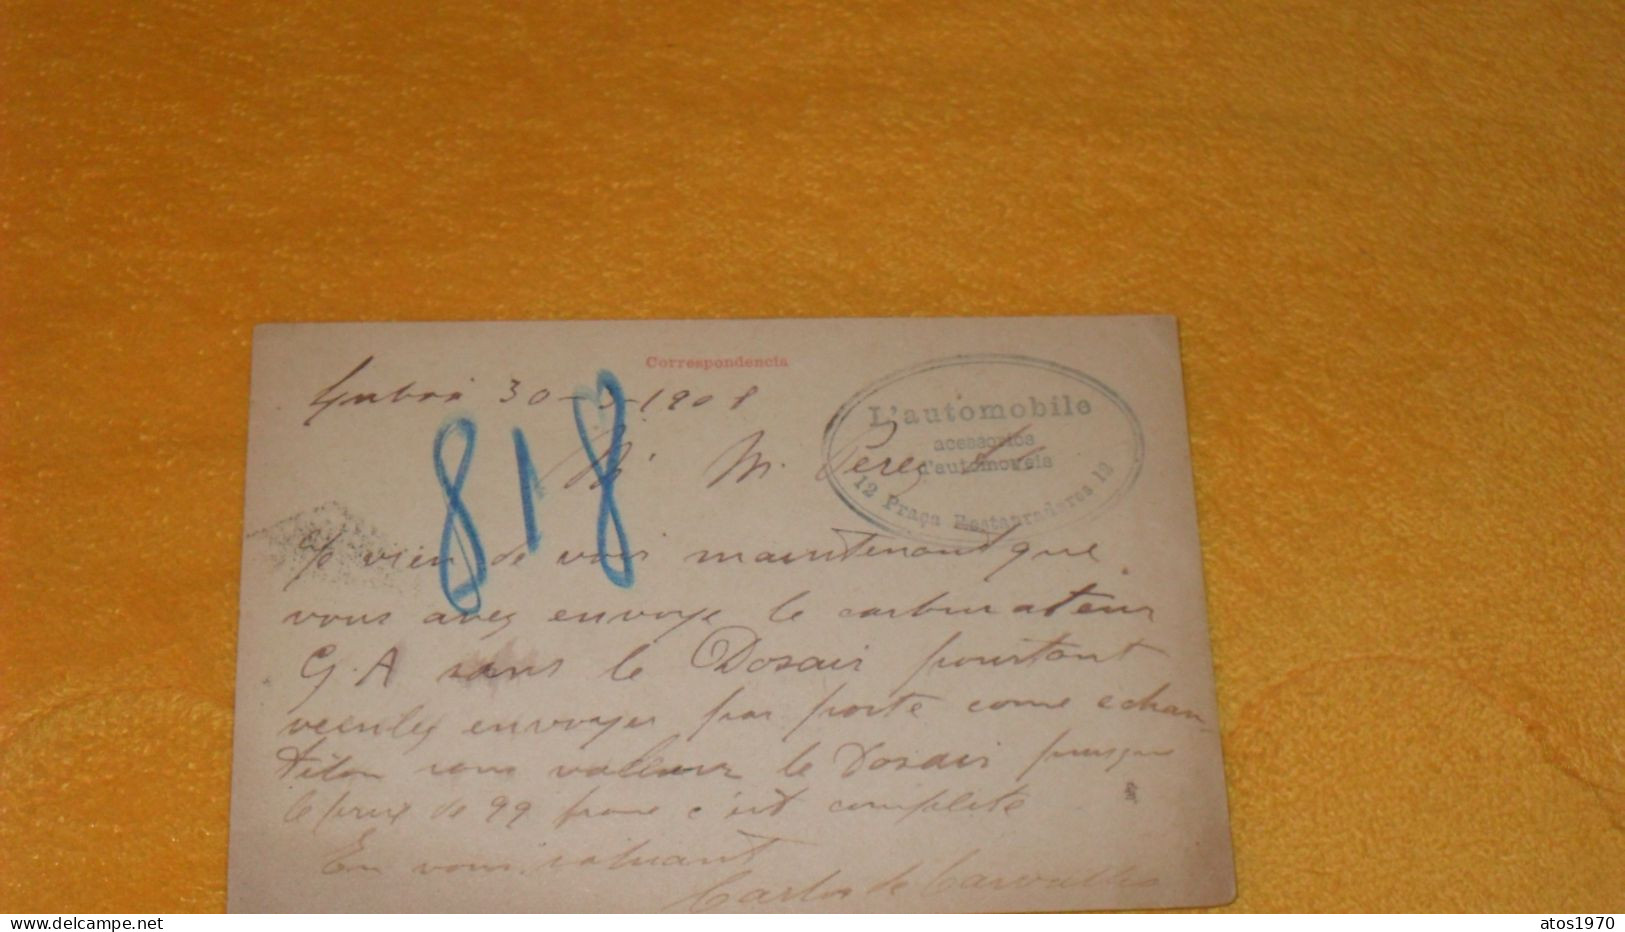 Correspondencia
30-5-1908
L'automobile
acessorios
d'automoveis
12 Praça Restauradores 12
818
M. M. Perez
Je vien de voir maintenant que
vous avez envoye le carburateur
G.A sans le Dosair pourtant
veuillez envoyer par poste come echan-
tilon sans valleur le Dosair puisque
le prix de 99 franc c'est complete
En vous saluant
Carlos de Carvalho
atos1970